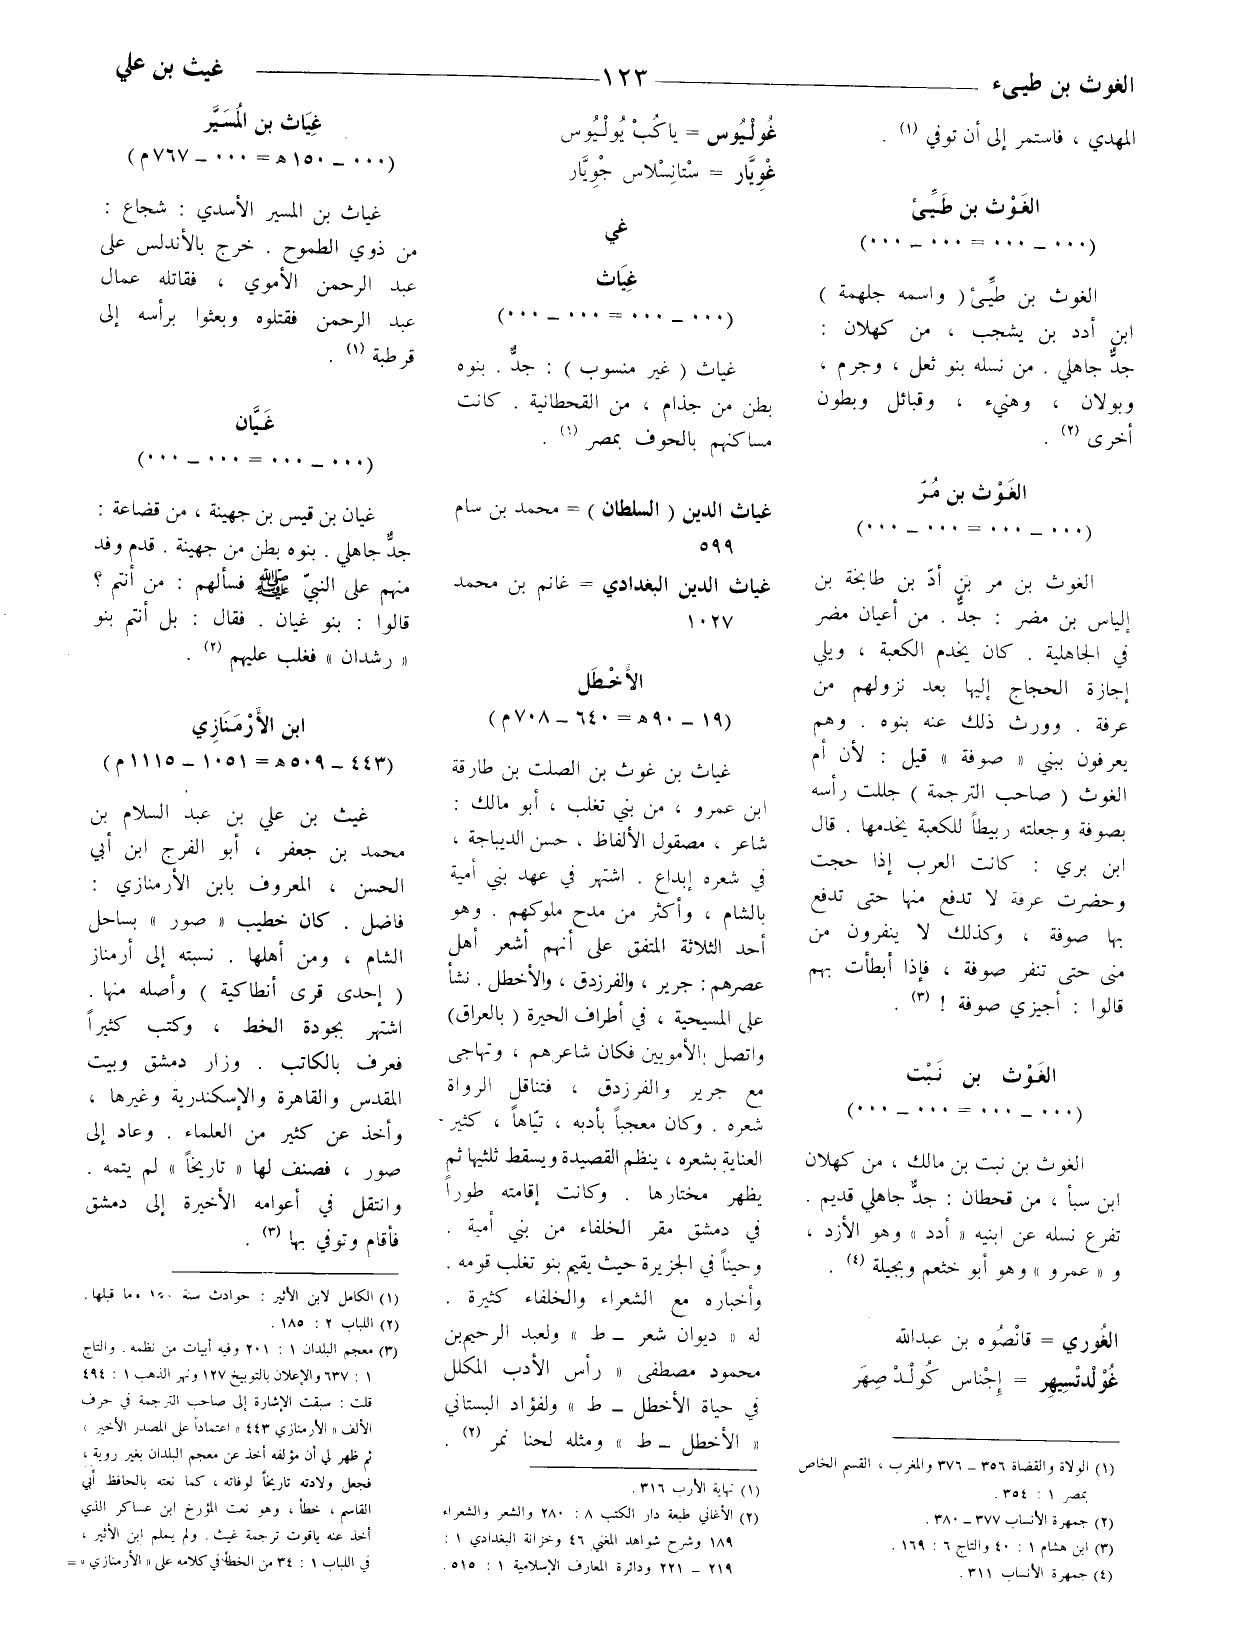 الغوث بن طيىء
١٢٣
غيث بن علي
المهدي ، فاستمر إلى أن توفي (١) .
الغَوْث بن طَيِّئ
(٠٠٠ ـ ٠٠٠ = ٠٠٠ ـ ٠٠٠)
الغوث بن طيِّئ ( واسمه جلهمة )
ابن أدد بن يشجب ، من كهلان :
جدٌّ جاهلي . من نسله بنو ثعل ، وجرم ،
وبولان ، وهنيء ، وقبائل وبطون
أخرى (٢) .
الغَوْث بن مُرّ
(٠٠٠ ـ ٠٠٠ = ٠٠٠ ـ ٠٠٠)
الغوث بن مر بن أدّ بن طابخة بن
إلياس بن مضر : جدٌّ . من أعيان مضر
في الجاهلية . كان يخدم الكعبة ، ويلي
إجازة الحجاج إليها بعد نزولهم من
عرفة . وورث ذلك عنه بنوه . وهم
يعرفون ببني « صوفة » قيل : لأن أم
الغوث ( صاحب الترجمة ) جللت رأسه
بصوفة وجعلته ربيطاً للكعبة يخدمها . قال
ابن بري : كانت العرب إذا حجت
وحضرت عرفة لا تدفع منها حتى تدفع
بها صوفة ، وكذلك لا ينفرون من
منى حتى تنفر صوفة ، فإذا أبطأت بهم
قالوا : أجيزي صوفة ! (٣) .
الغَوْث بن نَبْت
(٠٠٠ ـ ٠٠٠ = ٠٠٠ ـ ٠٠٠)
الغوث بن نبت بن مالك ، من كهلان
ابن سبأ ، من قحطان : جدٌّ جاهلي قديم .
تفرع نسله عن ابنيه « أدد » وهو الأزد ،
و « عمرو » وهو أبو خثعم وبجيلة (٤) .
الغُوري = قانْصُوه بن عبدالله
غُوْلْدتْسِيهر = إجْناس كُولْدْ صِهَر
(١) الولاة والقضاة ٣٥٦ ـ ٣٧٦ والمغرب ، القسم الخاص
بمصر ١ : ٣٥٤ .
(٢) جمهرة الأنساب ٣٧٧ ـ ٣٨٠ .
(٣) ابن هشام ١ : ٤٠ والتاج ٦ : ١٦٩ .
(٤) جمهرة الأنساب ٣١١ .
غُولْيُوس = ياكُبْ يُولْيُوس
غْويَّار = سْتانِسْلاس جْويَّار
غي
غِيَاث
(٠٠٠ ـ ٠٠٠ = ٠٠٠ ـ ٠٠٠)
غياث ( غير منسوب ) : جدٌّ . بنوه
بطن من جذام ، من القحطانية . كانت
مساكنهم بالحوف بمصر (١) .
غياث الدين ( السلطان ) = محمد بن سام
٥٩٩
غياث الدين البغدادي = غانم بن محمد
١٠٢٧
الأخْطَل
(١٩ ـ ٩٠ هـ = ٦٤٠ ـ ٧٠٨ م)
غياث بن غوث بن الصلت بن طارقة
ابن عمرو ، من بني تغلب ، أبو مالك :
شاعر ، مصقول الألفاظ ، حسن الديباجة ،
في شعره إبداع . اشتهر في عهد بني أمية
بالشام ، وأكثر من مدح ملوكهم . وهو
أحد الثلاثة المتفق على أنهم أشعر أهل
عصرهم : جرير ، والفرزدق ، والأخطل . نشأ
على المسيحية ، في أطراف الحيرة ( بالعراق)
واتصل بالأمويين فكان شاعرهم ، وتهاجى
مع جرير والفرزدق ، فتناقل الرواة
شعره . وكان معجباً بأدبه ، تيّاهاً ، كثير
العناية بشعره ، ينظم القصيدة ويسقط ثلثيها ثم
يظهر مختارها . وكانت إقامته طوراً
في دمشق مقر الخلفاء من بني أمية .
وحيناً في الجزيرة حيث يقيم بنو تغلب قومه .
وأخباره مع الشعراء والخلفاء كثيرة .
له « ديوان شعر ـ ط » ولعبد الرحيم بن
محمود مصطفى « رأس الأدب المكلل
في حياة الأخطل ـ ط » ولفؤاد البستاني
« الأخطل ـ ط » ومثله لحنا نمر (٢) .
(١) نهاية الأرب ٣١٦ .
(٢) الأغاني طبعة دار الكتب ٨ : ٢٨٠ والشعر والشعراء
١٨٩ وشرح شواهد المغني ٤٦ وخزانة البغدادي ١ :
٢١٩ ـ ٢٢١ ودائرة المعارف الإسلامية ١ : ٥١٥ .
غِيَاث بن المُسَيَّر
(٠٠٠ ـ ١٥٠ هـ = ٠٠٠ ـ ٧٦٧ م)
غياث بن المسير الأسدي : شجاع :
من ذوي الطموح . خرج بالأندلس على
عبد الرحمن الأموي ، فقاتله عمال
عبد الرحمن فقتلوه وبعثوا برأسه إلى
قرطبة (١) .
غَيَّان
(٠٠٠ ـ ٠٠٠ = ٠٠٠ ـ ٠٠٠)
غيان بن قيس بن جهينة ، من قضاعة :
جدٌّ جاهلي . بنوه بطن من جهينة . قدم وفد
منهم على النبيّ ﷺ فسألهم : من أنتم ؟
قالوا : بنو غيان . فقال : بل أنتم بنو
« رشدان » فغلب عليهم (٢) .
ابن الأَرْمَنَازِي
(٤٤٣ ـ ٥٠٩ هـ = ١٠٥١ ـ ١١١٥ م)
غيث بن علي بن عبد السلام بن
محمد بن جعفر ، أبو الفرج ابن أبي
الحسن ، المعروف بابن الأرمنازي :
فاضل . كان خطيب « صور » بساحل
الشام ، ومن أهلها . نسبته إلى أرمناز
( إحدى قرى أنطاكية ) وأصله منها .
اشتهر بجودة الخط ، وكتب كثيراً
فعرف بالكاتب . وزار دمشق وبيت
المقدس والقاهرة والإسكندرية وغيرها ،
وأخذ عن كثير من العلماء . وعاد إلى
صور ، فصنف لها « تاريخاً » لم يتمه .
وانتقل في أعوامه الأخيرة إلى دمشق
فأقام وتوفي بها (٣) .
(١) الكامل لابن الأثير : حوادث سنة ١٥٠ وما قبلها .
(٢) اللباب ٢ : ١٨٥ .
(٣) معجم البلدان ١ : ٢٠١ وفيه أبيات من نظمه . والتاج
١ : ٦٣٧ والإعلان بالتوبيخ ١٢٧ ونهر الذهب ١ : ٤٩٤
قلت : سبقت الإشارة إلى صاحب الترجمة في حرف
الألف « الأرمنازي ٤٤٣ » اعتماداً على المصدر الأخير ،
ثم ظهر لي أن مؤلفه أخذ عن معجم البلدان بغير روية ،
فجعل ولادته تاريخاً لوفاته ، كما نعته بالحافظ أبي
القاسم ، خطأ ، وهو نعت المؤرخ ابن عساكر الذي
أخذ عنه ياقوت ترجمة غيث . ولم يسلم ابن الأثير ،
في اللباب ١ : ٣٤ من الخطأ في كلامه على « الأرمنازي » =